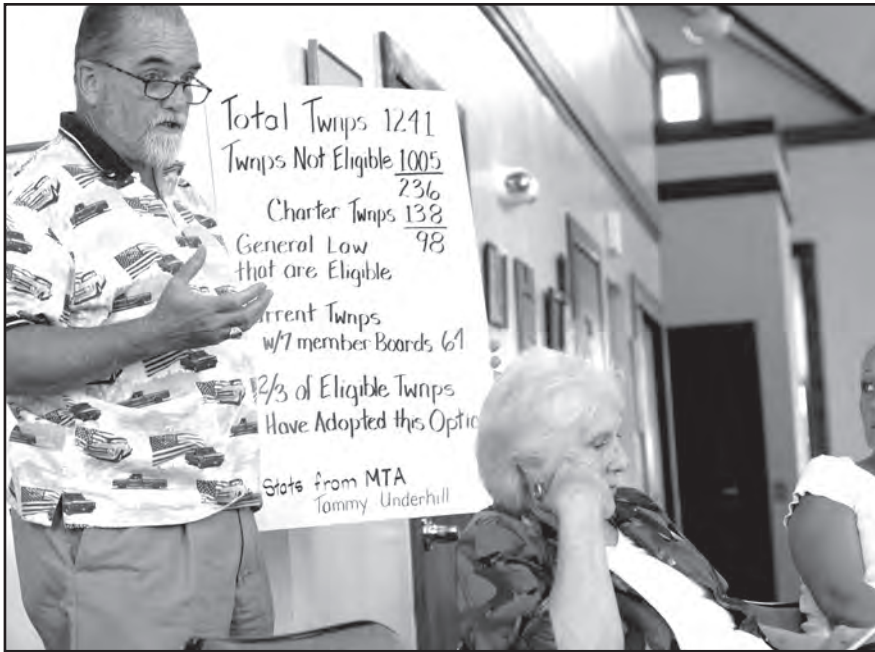 Total Twnps 1241
Twnps Not Eligible 1005
236
Charter Twnps 138
98
General Law
that are Eligible
rrent Twnps
w/7 member Boards 64
2/3 of Eligible Twnps
Have Adopted this Optio
Stats from MTA
Tammy Underhill